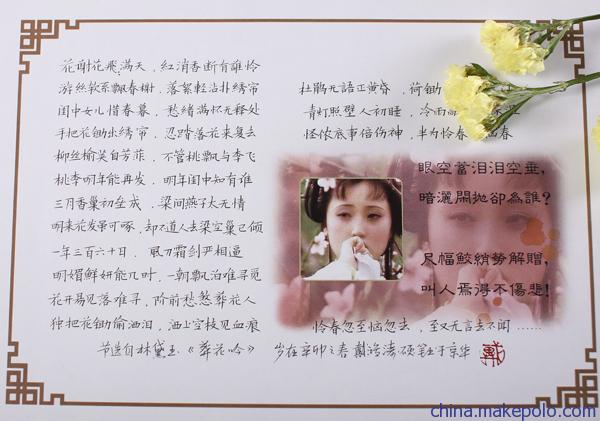 花谢花飛满天，紅消香断有誰怜
游丝软系飘春榭，落絮輕沾扑绣帘
闺中女儿惜春暮，愁绪满怀无释处
手把花锄出绣帘，忍踏落花来复去
柳丝榆荚自芳菲，不管桃飘与李飞
桃李明年能再发，明年闺中知有谁
三月香巢初垒成，梁间燕子太无情
明年花发虽可啄，却不道人去梁空巢已倾
一年三百六十日，風刀霜剑严相逼
明媚鲜妍能几时，一朝飘泊难寻觅
花开易见落难寻，阶前愁煞葬花人
独把花锄偷洒泪，洒上空枝见血痕
杜鹃无語正黄昏，荷锄
青灯照壁人初睡，冷雨
怪侬底事倍伤神，半为怜春 春
眼空蓄泪泪空垂，
暗灑閒抛卻為誰？
尺幅鮫綃勞解贈，
叫人焉得不傷悲！
怜春忽至恼忽去，至又无言去不闻……
节选自林黛玉《葬花吟》 岁在辛卯之春 戴 涛硕笔于京华
china.makepolo.com